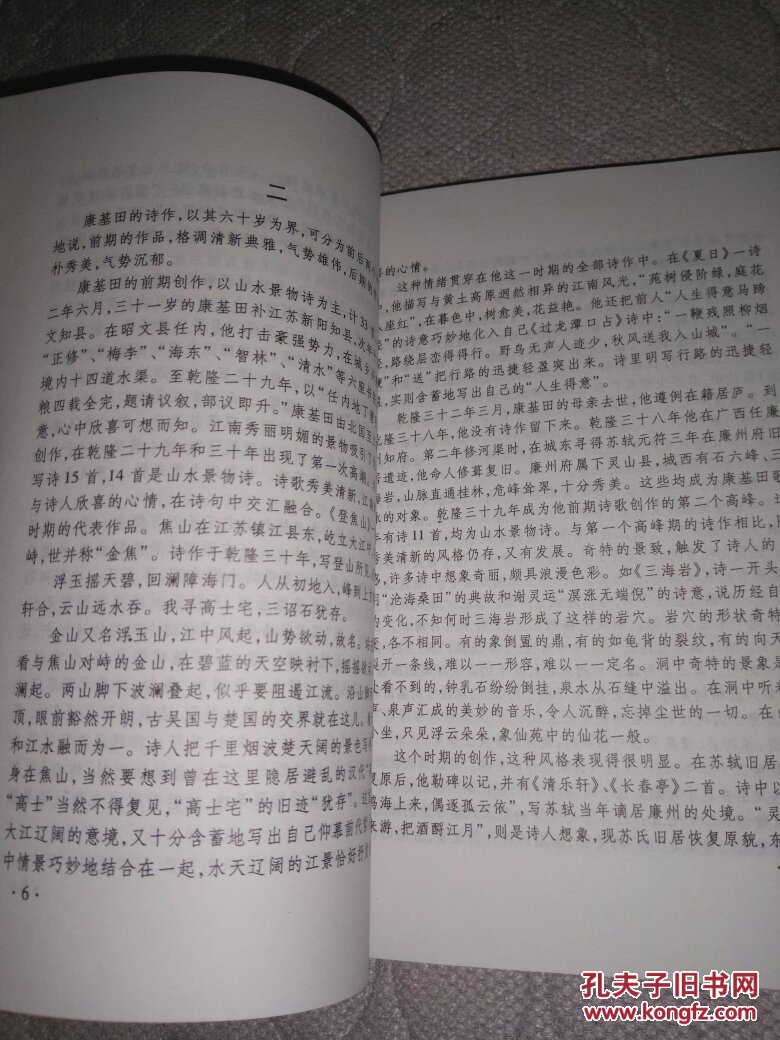 二
康基田的诗作，以其六十岁为界，可分为前后两个
地说，前期的作品，格调清新典雅，气势雄伟，后期的
朴秀美，气势沉郁。
康基田的前期创作，以山水景物诗为主，计33
二年六月，三十一岁的康基田补江苏新阳知县，次年
文知县。在昭文县任内，他打击豪强势力，在城乡
“正修”、“梅李”、“海东”、“智林”、“清水”等六座书
境内十四道水渠。至乾隆二十九年，以“任内地丁
粮四载全完，题请议叙，部议即升。”康基田由北国至
意，心中欣喜可想而知。江南秀丽明媚的景物吸引了
创作，在乾隆二十九年和三十年出现了第一次高潮，
写诗15首，14首是山水景物诗。诗歌秀美清新，江南
与诗人欣喜的心情，在诗句中交汇融合。《登焦山》
时期的代表作品。焦山在江苏镇江县东，屹立大江中
峙，世并称“金焦”。诗作于乾隆三十年，写登山所见
浮玉摇天碧，回澜障海门。人从初地入，峰到上
轩合，云山远水吞。我寻高士宅，三诏石犹存。
金山又名浮玉山，江中风起，山势欲动，故名。
看与焦山对峙的金山，在碧蓝的天空映衬下，摇摇
澜起。两山脚下波澜叠起，似乎要阻遏江流。沿山
顶，眼前豁然开朗，古吴国与楚国的交界就在这儿。
和江水融而为一。诗人把千里烟波楚天阔的景色写
身在焦山，当然要想到曾在这里隐居避乱的汉代
“高士”当然不得复见，“高士宅”的旧迹“犹存”。
大江辽阔的意境，又十分含蓄地写出自己仰慕前代
中情景巧妙地结合在一起，水天辽阔的江景恰好抒发
·6·
的心情。
这种情绪贯穿在他这一时期的全部诗作中。在《夏日》一诗
，他描写与黄土高原迥然相异的江南风光，“苑树侵阶绿，庭花
座红”，在暮色中，树愈美，花益艳。他还把前人“人生得意马蹄
”的诗意巧妙地化入自己《过龙潭口占》诗中：“一鞭残照柳烟
，路绕层峦得得行。野鸟无声人迹少，秋风送我入山城”。“一
”和“送”把行路的迅捷轻盈突出来。诗里明写行路的迅捷轻
，实则含蓄地写出自己的“人生得意”。
乾隆三十二年三月，康基田的母亲去世，他遵例在籍居庐。到
隆三十八年，他没有诗作留下来。乾隆三十八年他在广西任廉
知府。第二年修河渠时，在城东寻得苏轼元符三年在廉州府旧
遗迹，他命人修葺复旧。廉州府属下灵山县，城西有石六峰、三
岩，山脉直通桂林，危峰耸翠，十分秀美。这些均成为康基田歌
的对象。乾隆三十九年成为他前期诗歌创作的第二个高峰。这
有诗11首，均为山水景物诗。与第一个高峰期的诗作相比，
秀美清新的风格仍存，又有发展。奇特的景致，触发了诗人的
，许多诗中想象奇丽，颇具浪漫色彩。如《三海岩》，诗一开头
“沧海桑田”的典故和谢灵运“溟涨无端倪”的诗意，说历经自
的变化，不知何时三海岩形成了这样的岩穴。岩穴的形状奇特
各不相同。有的象倒置的鼎，有的如龟背的裂纹，有的向天
裂开一条线，难以一一形容，难以一一定名。洞中奇特的景象是
处看不到的，钟乳石纷纷倒挂，泉水从石缝中溢出。在洞中听
声、泉声汇成的美妙的音乐，令人沉醉，忘掉尘世的一切。在
小坐，只见浮云朵朵，象仙苑中的仙花一般。
这个时期的创作，这种风格表现得很明显。在苏轼旧居
复原后，他勒碑以记，并有《清乐轩》、《长春亭》二首。诗中以
鸣海上来，偶逐孤云依”，写苏轼当年谪居廉州的处境。“灵
来游，把酒酹江月”，则是诗人想象，现苏氏旧居恢复原貌，东
孔夫子旧书网
www.kongfz.com